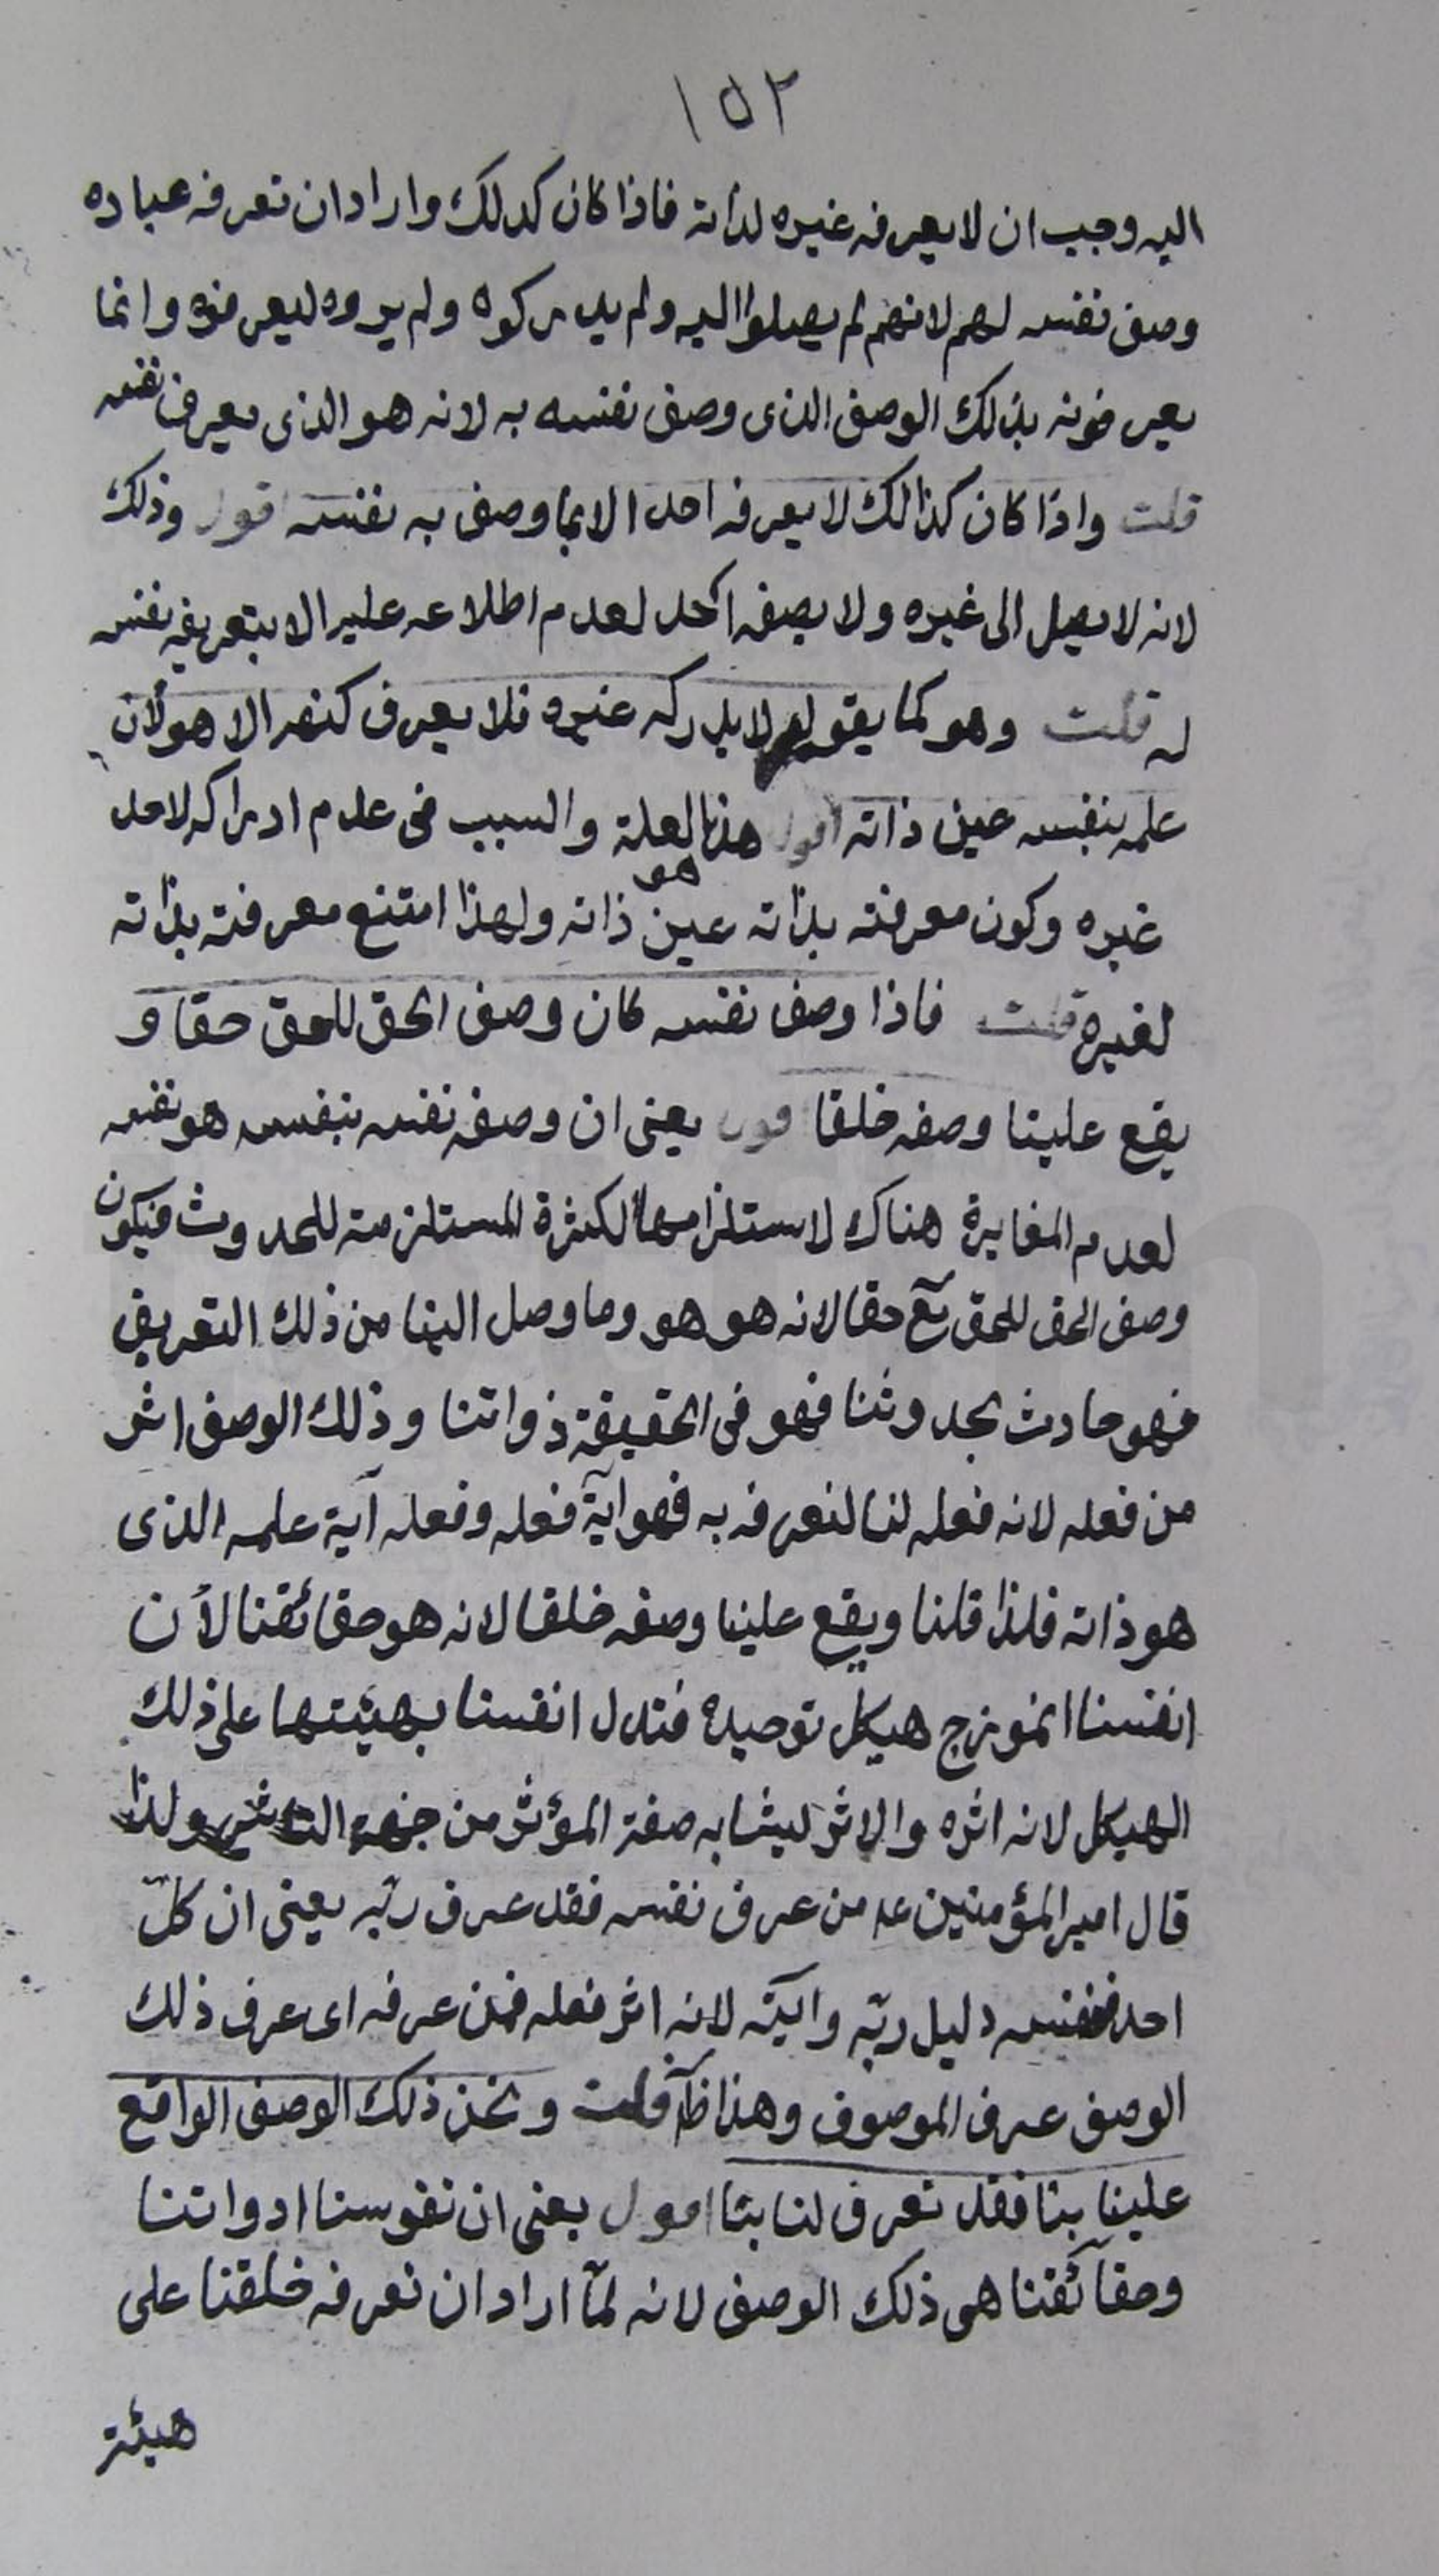 ١٥٢
اليه وجب ان لا يعرفه غيره لذاته فاذا كان كذلك واراد ان تعرفه عباده
وصف نفسه لهم لانهم لم يصلوا اليه ولم يدركوه ولم يروه ليعرفوه وانما
يعرفونه بذلك الوصف الذى وصف نفسه به لانه هو الذى يعرف نفسه
قلت واذا كان كذالك لا يعرفه احد الا بما وصف به نفسه اقول وذلك
لانه لا يصل الى غيره ولا يصفه احد لعدم اطلاعه عليه الا بتعريفه نفسه
له قلت وهو كما يقول لا يدركه غيره فلا يعرف كنهه الا هو لان
علمه بنفسه عين ذاته اقول هذا العلة والسبب فى عدم ادراكه لاحد
غيره وكون معرفته بذاته هو عين ذاته ولهذا امتنع معرفته بذاته
لغيره قلت فاذا وصف نفسه كان وصف الحق للحق حقا و
يقع علينا وصفه خلقا اقول يعنى ان وصفه نفسه بنفسه هو نفسه
لعدم المغايرة هناك لاستلزامها الكثرة المستلزمة للحدوث فيكون
وصف الحق للحق تع حقا لانه هو هو وما وصل الينا من ذلك التعريف
فهو حادث بحدوثنا فهو فى الحقيقة ذواتنا وذلك الوصف اثر
من فعله لانه فعله لنا لنعرفه به فهو اية فعله وفعله آية علمه الذى
هو ذاته فلذا قلنا ويقع علينا وصفه خلقا لانه هو حقائقنا لأن
انفسنا انموزج هيكل توحيده فتدل انفسنا بهيئتها على ذلك
الهيكل لانه اثره والاثر ليشابه صفة المؤثر من جهة التاثير ولذا
قال امير المؤمنين عه من عرف نفسه فقد عرف ربّه يعنى ان كلّ
احد فنفسه دليل ربّه وايته لانه اثر فعله فمن عرفه اى عرف ذلك
الوصف عرف الموصوف وهذا ظآ قلت ونحن ذلك الوصف الواقع
علينا بنا فقد تعرف لنا بنا اقول يعنى ان نفوسنا اذواتنا
وحقائقنا هى ذلك الوصف لانه لمّا اراد ان نعرفه خلقنا على
هيئة